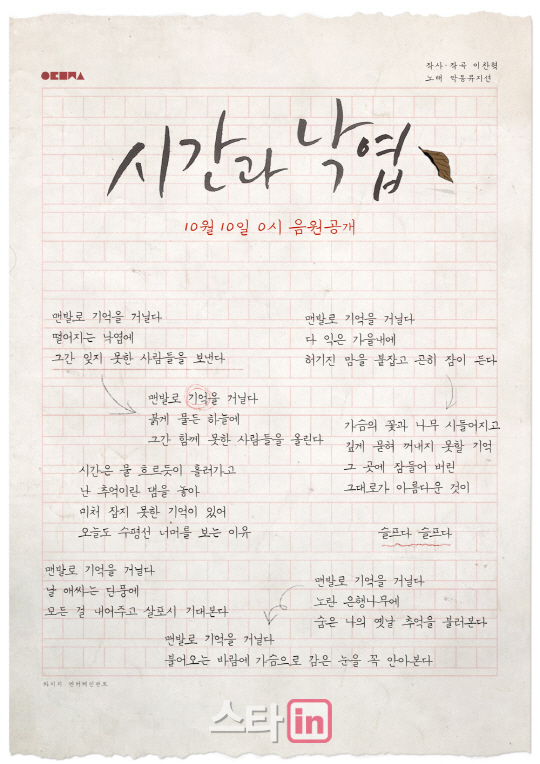 작사·작곡 이찬혁
노래 악동뮤지션
시간과 낙엽
10월 10일 0시 음원공개
맨발로 기억을 거닐다
떨어지는 낙엽에
그간 잊지 못한 사람들을 보낸다
맨발로 기억을 거닐다
붉게 물든 하늘에
그간 함께 못한 사람들을 올린다
시간은 물 흐르듯이 흘러가고
난 추억이란 댐을 놓아
미처 잡지 못한 기억이 있어
오늘도 수평선 너머를 보는 이유
맨발로 기억을 거닐다
날 애싸는 단풍에
모든 걸 내어주고 살포시 기대본다
맨발로 기억을 거닐다
다 익은 가을내에
허기진 맘을 붙잡고 곤히 잠이 든다
가슴의 꽃과 나무 시들어지고
깊게 묻혀 꺼내지 못할 기억
그 곳에 잠들어 버린
그대로가 아름다운 것이
슬프다 슬프다
맨발로 기억을 거닐다
노란 은행나무에
숨은 나의 옛날 추억을 불러본다
맨발로 기억을 거닐다
불어오는 바람에 가슴으로 감은 눈을 꼭 안아본다
스타in